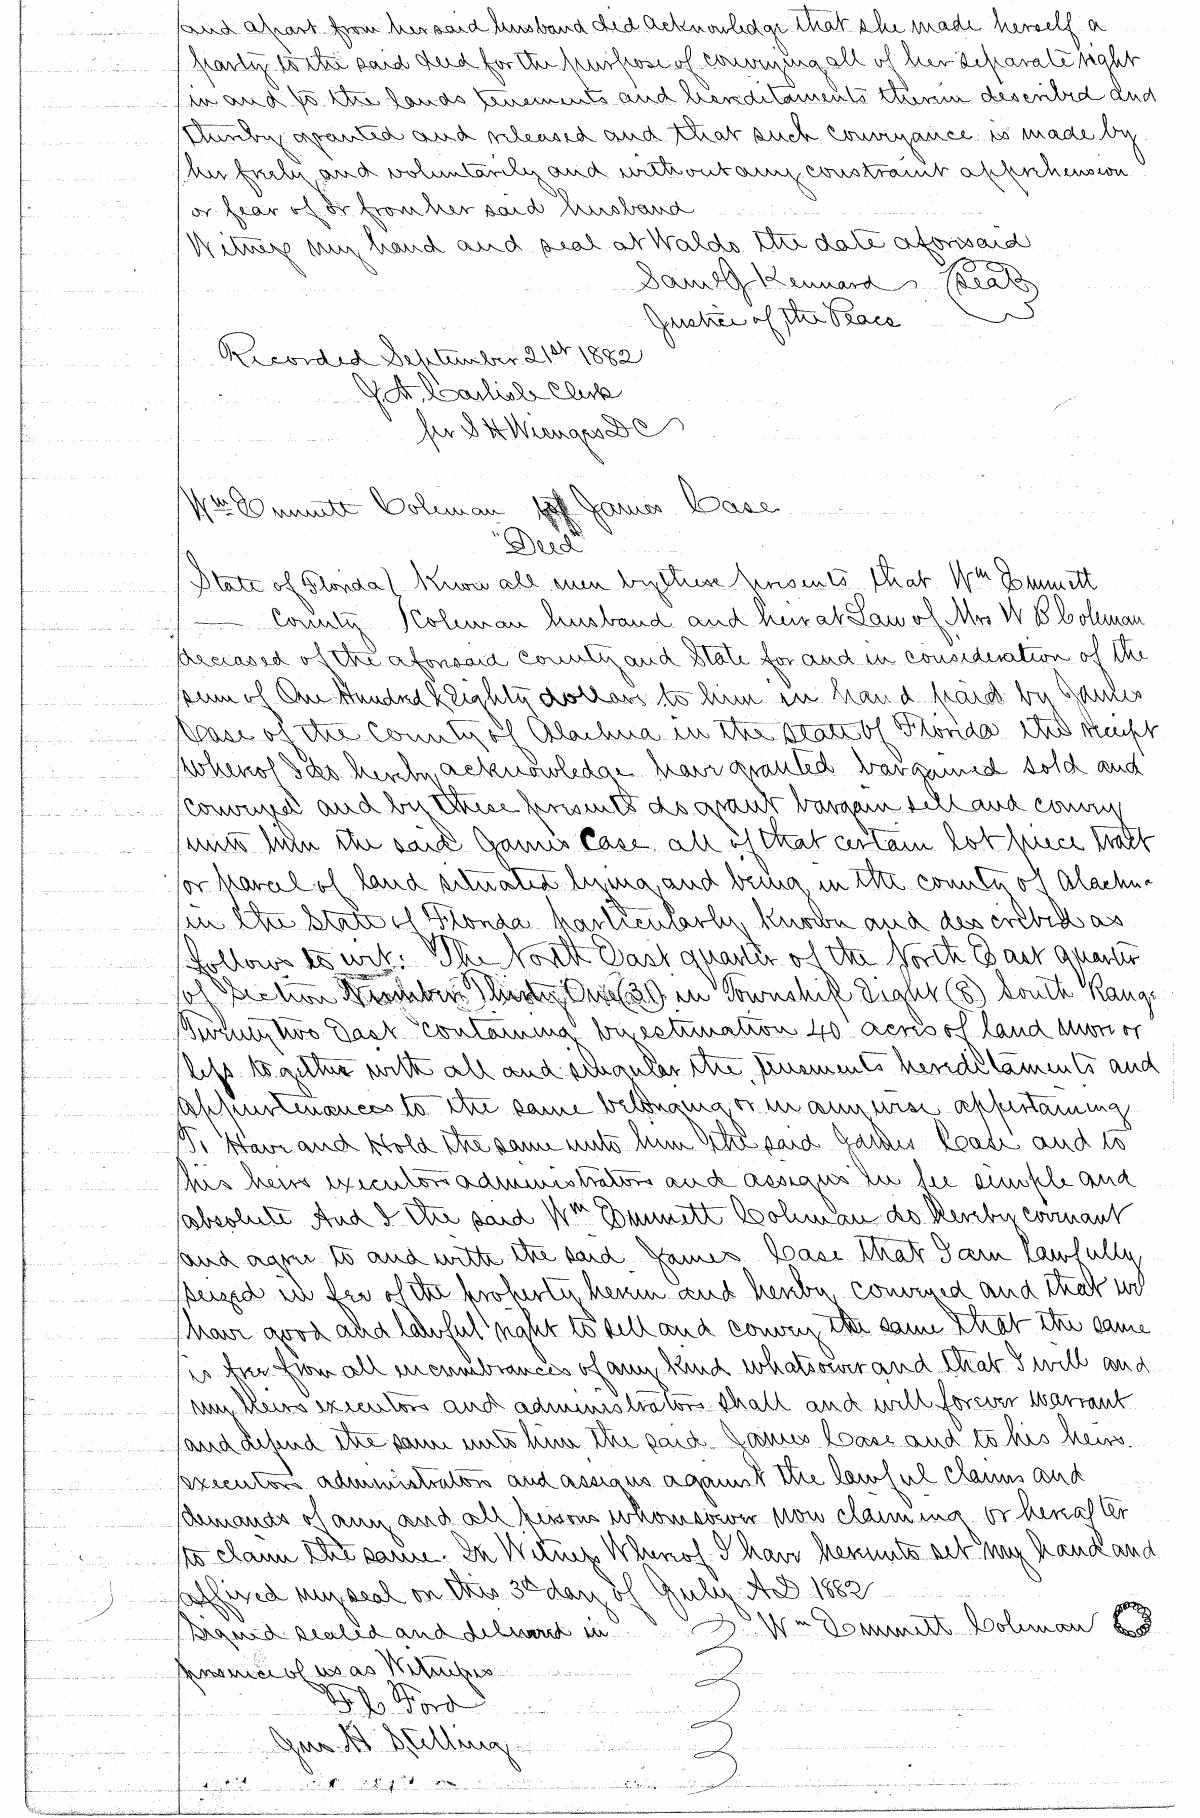 and apart from her said husband did acknowledge that she made herself a
party to the said deed for the purpose of conveying all of her separate right
in and to the lands tenements and hereditaments therein described and
thereby granted and released and that such conveyance is made by
her freely and voluntarily and without any constraint apprehension
or fear of or from her said husband
Witness my hand and seal at Waldo the date aforesaid
Saml J Kennard (Seal)
Justice of the Peace
Recorded September 21st 1882
J. A. Carlisle Clerk
per S H Wienges D C
Wm Emmett Coleman to James Case
"Deed"
State of Florida ( Know all men by these presents that Wm Emmett
— County ( Coleman husband and heir at Law of Mrs W B Coleman
deceased of the aforesaid county and State for and in consideration of the
sum of One Hundred & Eighty dollars to him in hand paid by James
Case of the County of Alachua in the State of Florida the receipt
whereof I do hereby acknowledge have granted bargained sold and
conveyed and by these presents do grant bargain sell and convey
unto him the said James Case all of that certain lot piece tract
or parcel of land situated lying and being in the county of Alachua
in the State of Florida particularly known and described as
follows to wit: The North East quarter of the North East quarter
of Section Number Thirty One (31) in Township Eight (8) South Range
Twenty two East containing by estimation 40 acres of land more or
less together with all and singular the tenements hereditaments and
appurtenances to the same belonging or in any wise appertaining
To Have and Hold the same unto him the said James Case and to
his heirs executors administrators and assigns in fee simple and
absolute And I the said Wm Emmett Coleman do hereby covenant
and agree to and with the said James Case that I am lawfully
seized in fee of the property herein and hereby conveyed and that we
have good and lawful right to sell and convey the same that the same
is free from all incumbrances of any kind whatsoever and that I will and
my heirs executors and administrators shall and will forever warrant
and defend the same unto him the said James Case and to his heirs
executors administrators and assigns against the lawful claims and
demands of any and all persons whomsoever now claiming or hereafter
to claim the same. In Witness Whereof I have hereunto set my hand and
affixed my seal on this 3d day of July A.D. 1882
Signed sealed and delivered in Wm Emmett Coleman
presence of us as Witnesses
F C Ford
Jno H Stelling